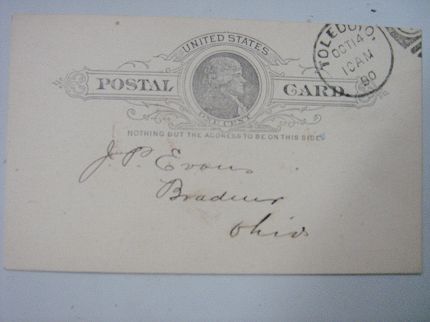 UNITED STATES
POSTAL CARD.
ONE CENT
NOTHING BUT THE ADDRESS TO BE ON THIS SIDE.
TOLEDO, O.
OCT 14
10 AM
90
J. P. Evans
Bradner
Ohio